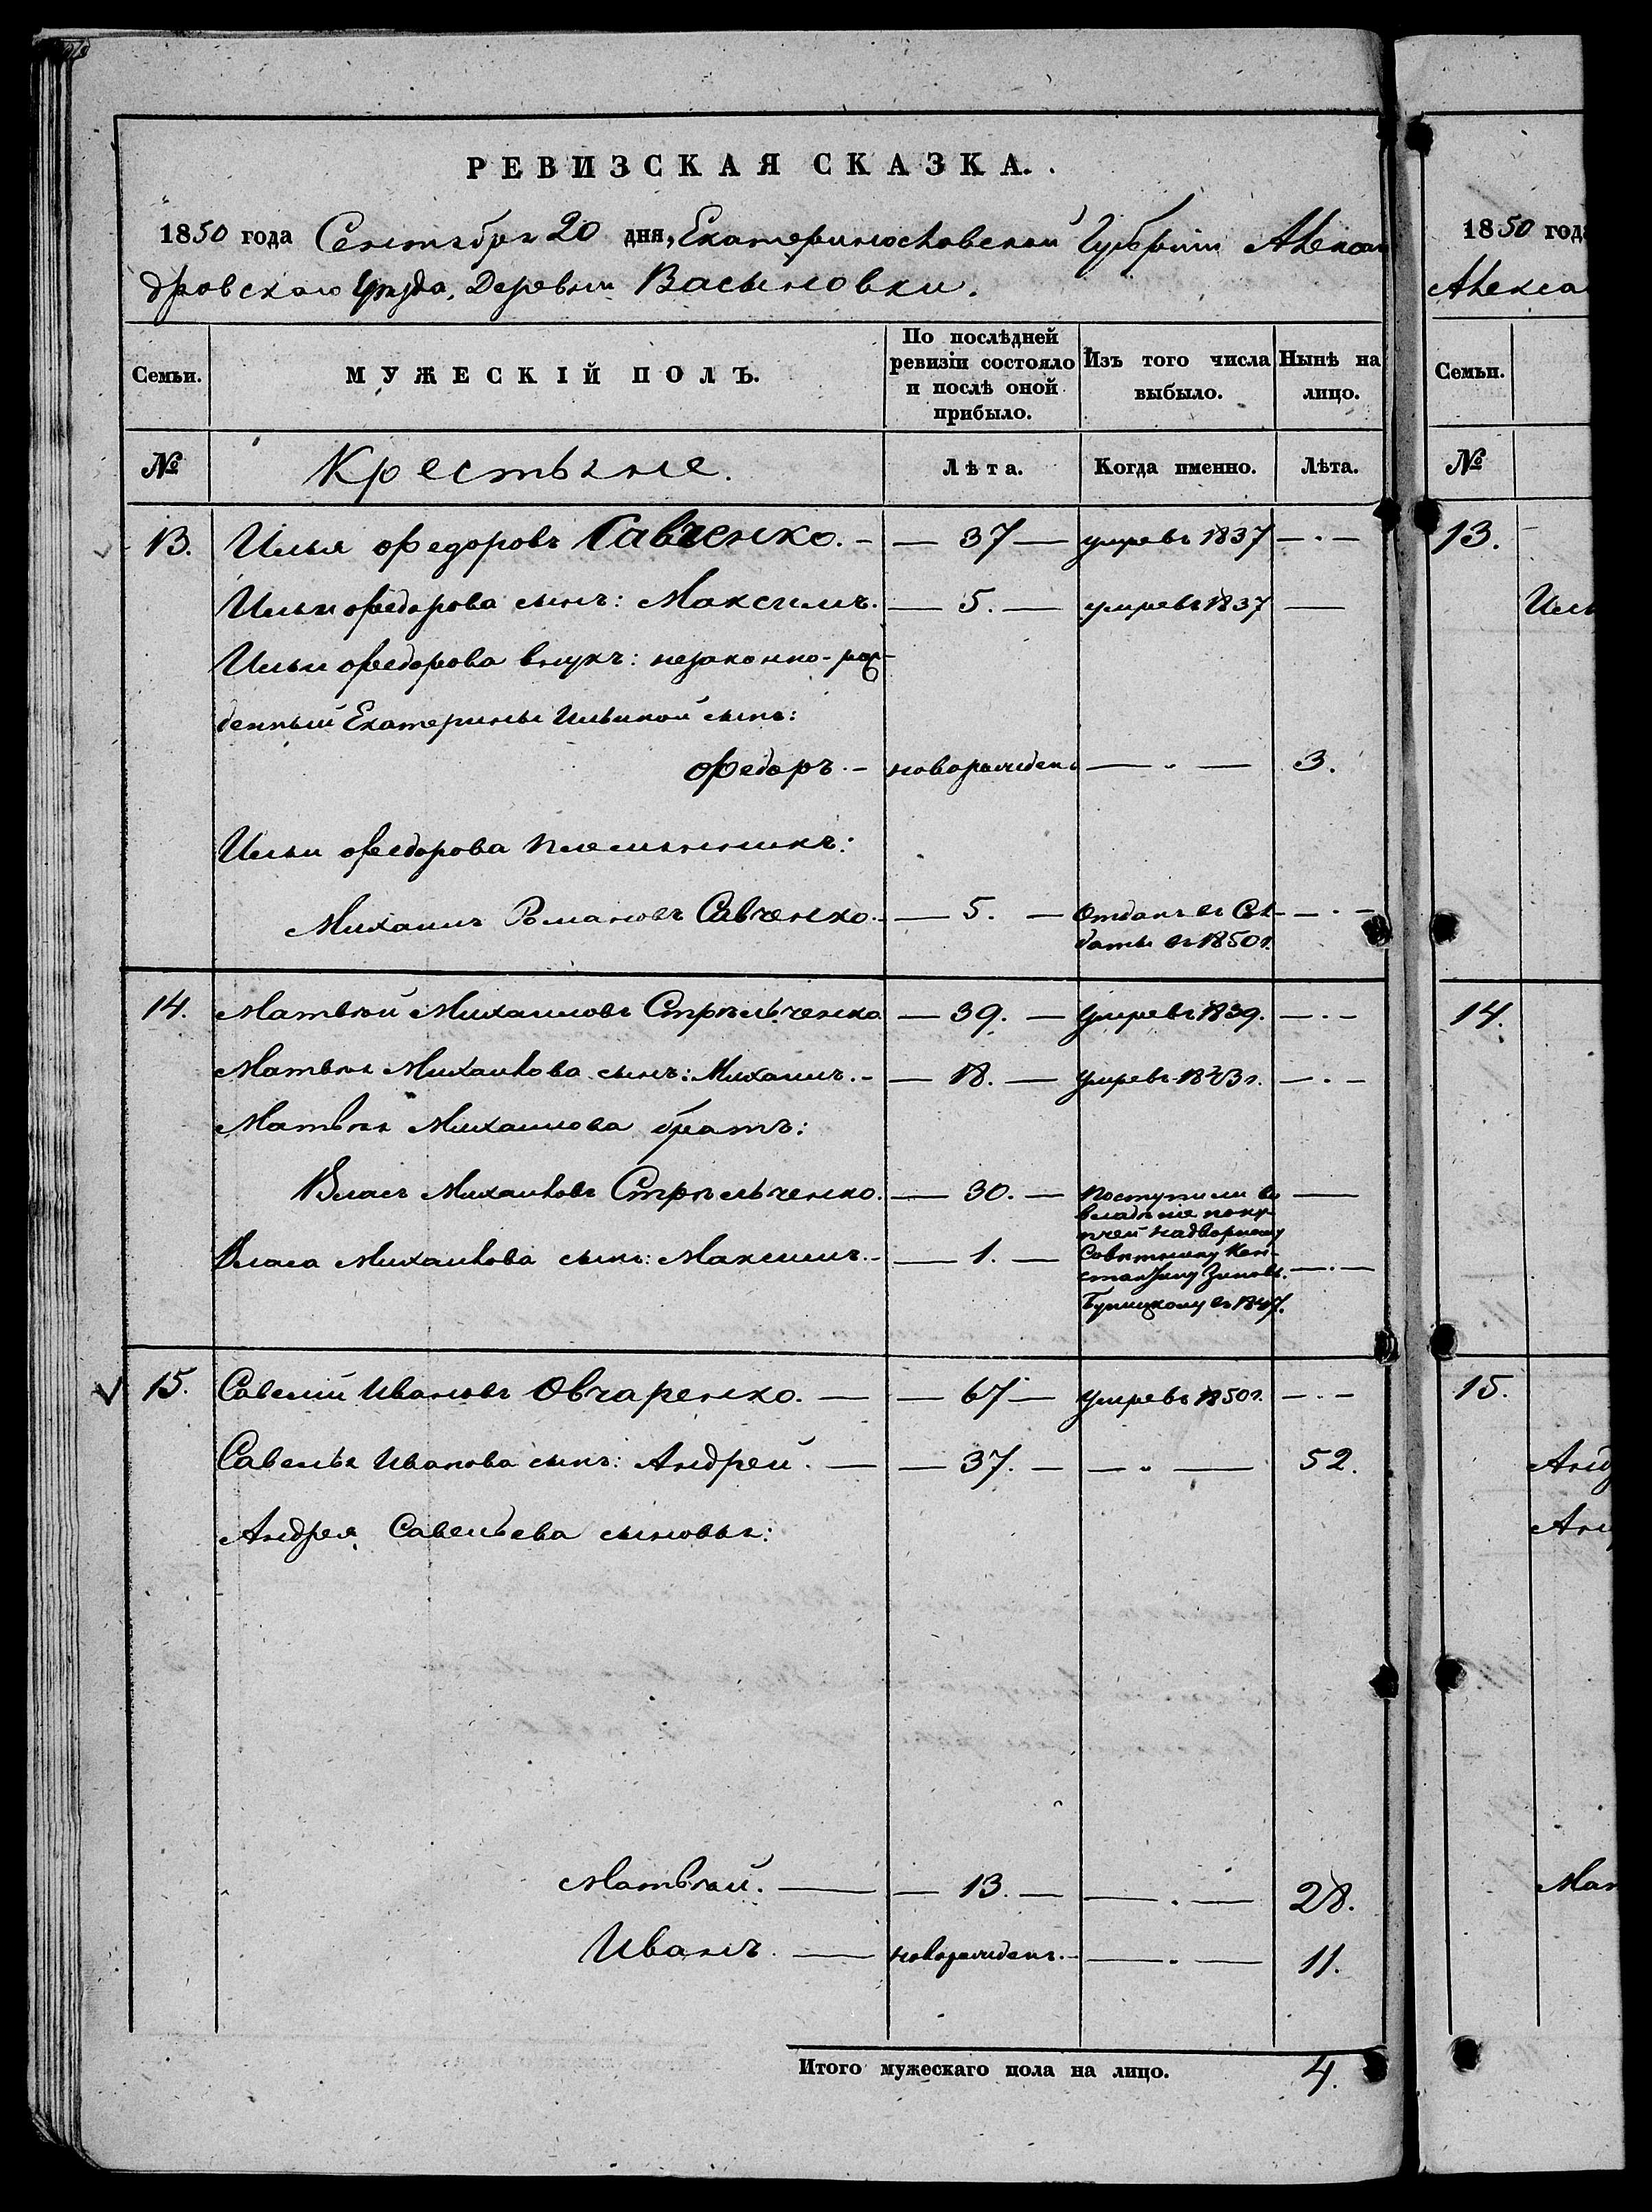 РЕВИЗСКАЯ СКАЗКА.
1850 года Сентября 20 дня, Екатеринославской Губернии Алексан
дровскаго Уѣзда, Деревни Васыновки.
Семьи. МУЖЕСКІЙ ПОЛЪ. По послѣдней ревизіи состояло и послѣ оной прибыло. Изъ того числа выбыло. Нынѣ на лицо.
№ Крестьяне. Лѣта. Когда именно. Лѣта.
13. Илья Федоровъ Савченко. — 37 — умре въ 1837 — . —
Ильи Федорова сынъ: Максимъ. — 5. — умре въ 1837 —
Ильи Федорова внукъ: незаконно-рож-
денный Екатерины Ильиной сынъ:
Федоръ. — новорожденъ — . — 3.
Ильи Федорова племянникъ:
Михаилъ Романовъ Савченко. — 5. — Отданъ въ Сол- — . —
даты въ 1850 г.
14. Матвѣй Михаиловъ Стрѣльченко — 39. — умре въ 1839. — . —
Матвѣя Михайлова сынъ: Михаилъ. — 18. — умре въ 1843 г. — . —
Матвѣя Михаилова братъ:
Власъ Михайловъ Стрѣльченко. — 30. — Поступили во —
владѣніе поку-
пчей надворному
Власа Михайлова сынъ: Максимъ. — 1. — Совѣтнику Кон-
стантину Зиновь. — . —
въ 1847.
15. Савелій Ивановъ Овчаренко. — — 67 — умре въ 1850 г. — . —
Савелья Иванова сынъ: Андрей. — — 37. — — . — 52.
Андрея Савельева сыновья:
Матвѣй. — — 13. — — . — 28.
Иванъ. — новорожденъ. — — . — 11.
Итого мужескаго пола на лицо. 4.
1850 года
Алекса
Семьи.
№
13.
Иль
14.
15.
Анд
Анд
Мат